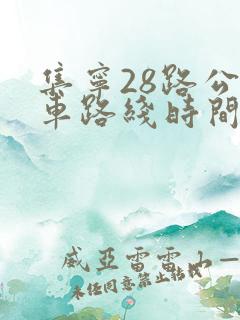 集寧28路公
車路綫時間
威亞雷雷山一
未任同意禁止轉載